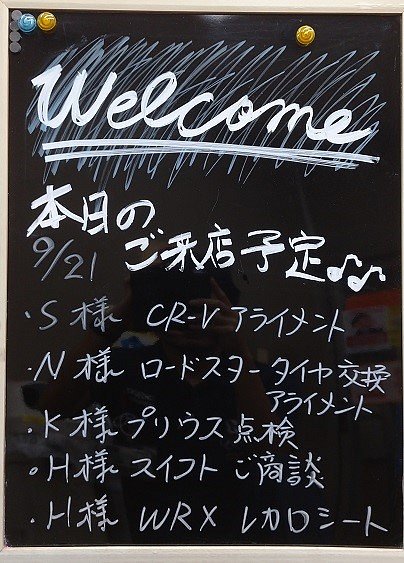 Welcome
本日の
9/21 ご来店予定♪♪
・S様 CR-V アライメント
・N様 ロードスター タイヤ交換
アライメント
・K様 プリウス点検
・H様 スイフト ご商談
・H様 WRX レカロシート